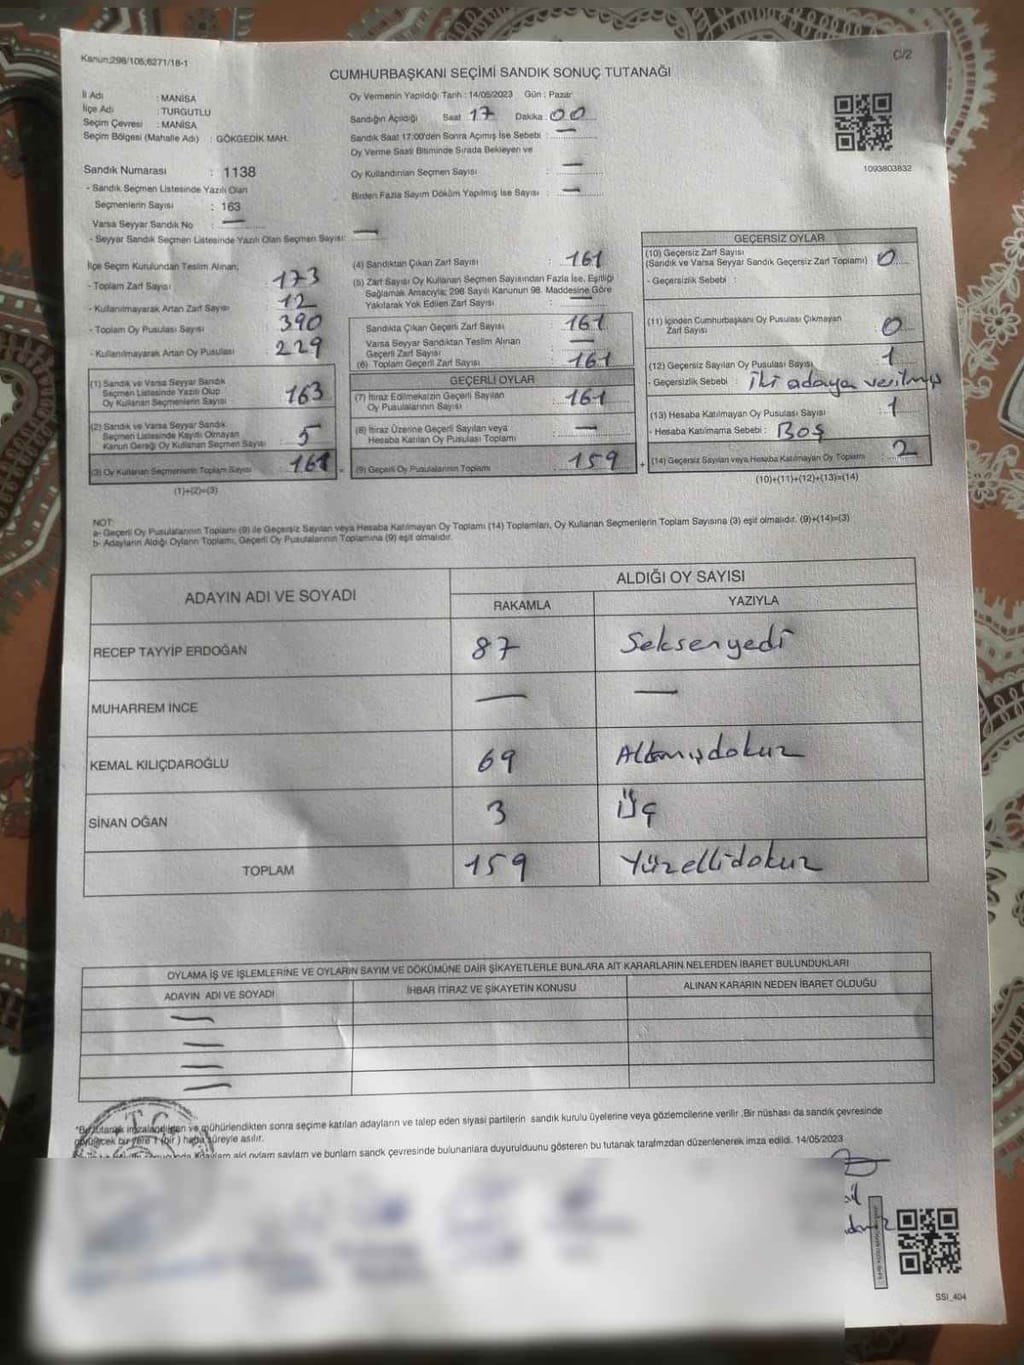 Kanun:298/105;6271/18-1
C/2
CUMHURBAŞKANI SEÇİMİ SANDIK SONUÇ TUTANAĞI
İl Adı : MANİSA
İlçe Adı : TURGUTLU
Seçim Çevresi : MANİSA
Seçim Bölgesi (Mahalle Adı) : GÖKGEDİK MAH.
Oy Vermenin Yapıldığı Tarih : 14/05/2023 Gün : Pazar
Sandığın Açıldığı Saat 17 Dakika : 00
Sandık Saat 17.00'den Sonra Açımış İse Sebebi : —
Oy Verme Saati Bitiminde Sırada Bekleyen ve
Oy Kullandırılan Seçmen Sayısı : —
Birden Fazla Sayım Döküm Yapılmış İse Sayısı : —
1093803832
Sandık Numarası : 1138
- Sandık Seçmen Listesinde Yazılı Olan
Seçmenlerin Sayısı : 163
Varsa Seyyar Sandık No : —
- Seyyar Sandık Seçmen Listesinde Yazılı Olan Seçmen Sayısı: —
İlçe Seçim Kurulundan Teslim Alınan;
- Toplam Zarf Sayısı 173
- Kullanılmayarak Artan Zarf Sayısı 12
- Toplam Oy Pusulası Sayısı 390
- Kullanılmayarak Artan Oy Pusulası 229
(1) Sandık ve Varsa Seyyar Sandık
Seçmen Listesinde Yazılı Olup
Oy Kullanan Seçmenlerin Sayısı 163
(2) Sandık ve Varsa Seyyar Sandık
Seçmen Listesinde Kayıtlı Olmayan
Kanun Gereği Oy Kullanan Seçmen Sayısı 5
(3) Oy Kullanan Seçmenlerin Toplam Sayısı 161
(1)+(2)=(3)
(4) Sandıktan Çıkan Zarf Sayısı : 161
(5) Zarf Sayısı Oy Kullanan Seçmen Sayısından Fazla İse, Eşitliği
Sağlamak Amacıyla; 298 Sayılı Kanunun 98. Maddesine Göre
Yakılarak Yok Edilen Zarf Sayısı : —
Sandıkta Çıkan Geçerli Zarf Sayısı : 161
Varsa Seyyar Sandıktan Teslim Alınan
Geçerli Zarf Sayısı : —
(6) Toplam Geçerli Zarf Sayısı : 161
GEÇERLİ OYLAR
(7) İtiraz Edilmeksizin Geçerli Sayılan
Oy Pusulalarının Sayısı : 161
(8) İtiraz Üzerine Geçerli Sayılan veya
Hesaba Katılan Oy Pusulası Toplamı : —
(9) Geçerli Oy Pusulalarının Toplamı : 159
GEÇERSİZ OYLAR
(10) Geçersiz Zarf Sayısı
(Sandık ve Varsa Seyyar Sandık Geçersiz Zarf Toplamı) : 0
- Geçersizlik Sebebi :
(11) İçinden Cumhurbaşkanı Oy Pusulası Çıkmayan
Zarf Sayısı : 0
(12) Geçersiz Sayılan Oy Pusulası Sayısı : 1
- Geçersizlik Sebebi : iki adaya verilmiş
(13) Hesaba Katılmayan Oy Pusulası Sayısı : 1
- Hesaba Katılmama Sebebi : Boş
(14) Geçersiz Sayılan veya Hesaba Katılmayan Oy Toplamı : 2
(10)+(11)+(12)+(13)=(14)
NOT:
a- Geçerli Oy Pusulalarının Toplamı (9) ile Geçersiz Sayılan veya Hesaba Katılmayan Oy Toplamı (14) Toplamları, Oy Kullanan Seçmenlerin Toplam Sayısına (3) eşit olmalıdır. (9)+(14)=(3)
b- Adayların Aldığı Oyların Toplamı, Geçerli Oy Pusulalarının Toplamına (9) eşit olmalıdır.
ADAYIN ADI VE SOYADI
ALDIĞI OY SAYISI
RAKAMLA YAZIYLA
RECEP TAYYİP ERDOĞAN 87 Seksenyedi
MUHARREM İNCE — —
KEMAL KILIÇDAROĞLU 69 Altmışdokuz
SİNAN OĞAN 3 Üç
TOPLAM 159 Yüzellidokuz
OYLAMA İŞ VE İŞLEMLERİNE VE OYLARIN SAYIM VE DÖKÜMÜNE DAİR ŞİKAYETLERLE BUNLARA AİT KARARLARIN NELERDEN İBARET BULUNDUKLARI
ADAYIN ADI VE SOYADI İHBAR İTİRAZ VE ŞİKAYETİN KONUSU ALINAN KARARIN NEDEN İBARET OLDUĞU
—
—
—
—
T.C.
*Bu tutanak imzalandıktan ve mühürlendikten sonra seçime katılan adayların ve talep eden siyasi partilerin sandık kurulu üyelerine veya gözlemcilerine verilir .Bir nüshası da sandık çevresinde
görülecek bir yere 1 (bir ) hafta süreyle asılır.
oyların sayların ve bunların sandk çevresinde bulunanlara duyurulduunu gösteren bu tutanak tarafmzdan düzenlenerek imza edildi. 14/05/2023
SSI_404